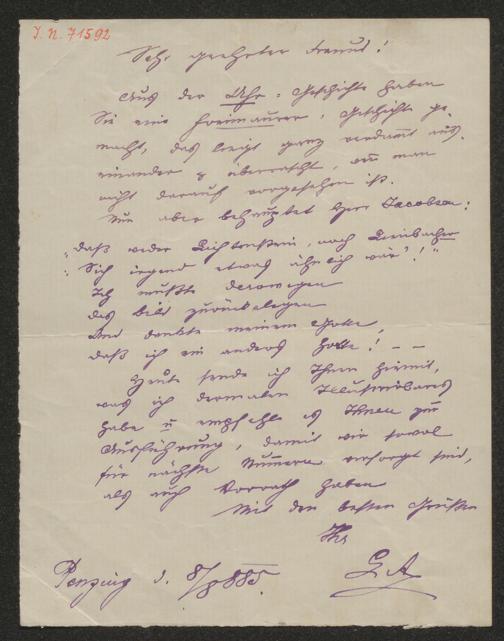 I. N. 71592
Sehr geehrter Freund!
Aus der Uhr-Geschichte haben
Sie eine Freimaurer-Geschichte ge-
macht, das liegt ganz verdammt aus-
einander & überrascht, wenn man
nicht darauf vorgesehen ist.
Nun aber behauptet Herr Jacobsen:
"daß weder Lichtenstein, noch Lienbacher
"Sich irgend etwas ähnlich wär"!"
Ich mußte deswegen
das Bild zurücklegen
Und dankte meinem Gotte,
daß ich ein anders hatte! – –
Heute sende ich Ihnen hiermit,
was ich dermalen Illustrirbares
habe u empfehle es Ihnen zur
Ausführung, damit wir sowol
für nächste Nummern versorgt sind,
als auch Vorrath haben
Mit den besten Grüßen
Ihr
Penzing d. 8/8 885.